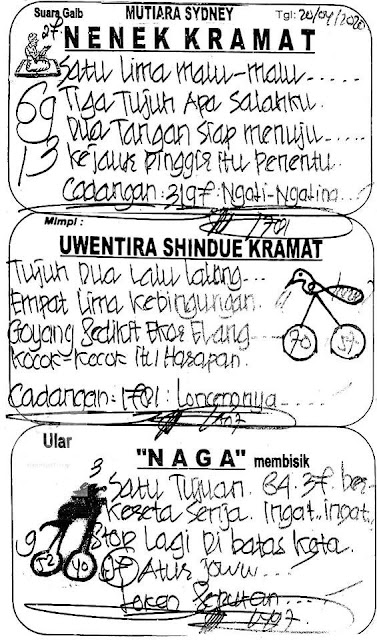 Suara Gaib MUTIARA SYDNEY Tgl: 20/04/2020
27.
NENEK KRAMAT
Satu Lima malu-malu
69 Tiga Tujuh Apa Salahku.
Dua Tangan Siap menuju.....
13 Kejauk Pinggir itu Penentu.
Cadangan: 3197. Ngati-Ngatina...
1701
Mimpi:
UWENTIRA SHINDUE KRAMAT
Tujuh Dua Lalu Lalang...
Empat Lima Kebingungan.
Goyang Sedikit Ekor Elang
70
Kocok-Kocok itu Harapan.
Cadangan: 1701: Loncernya
Ular
"NAGA" membisik
3
Satu Tujuan. 64. 37. ber-
Keseta Senja. Ingat.. Ingat..
9 Stop Lagi Di batas Kota.
52 40 97 Atur Joww...